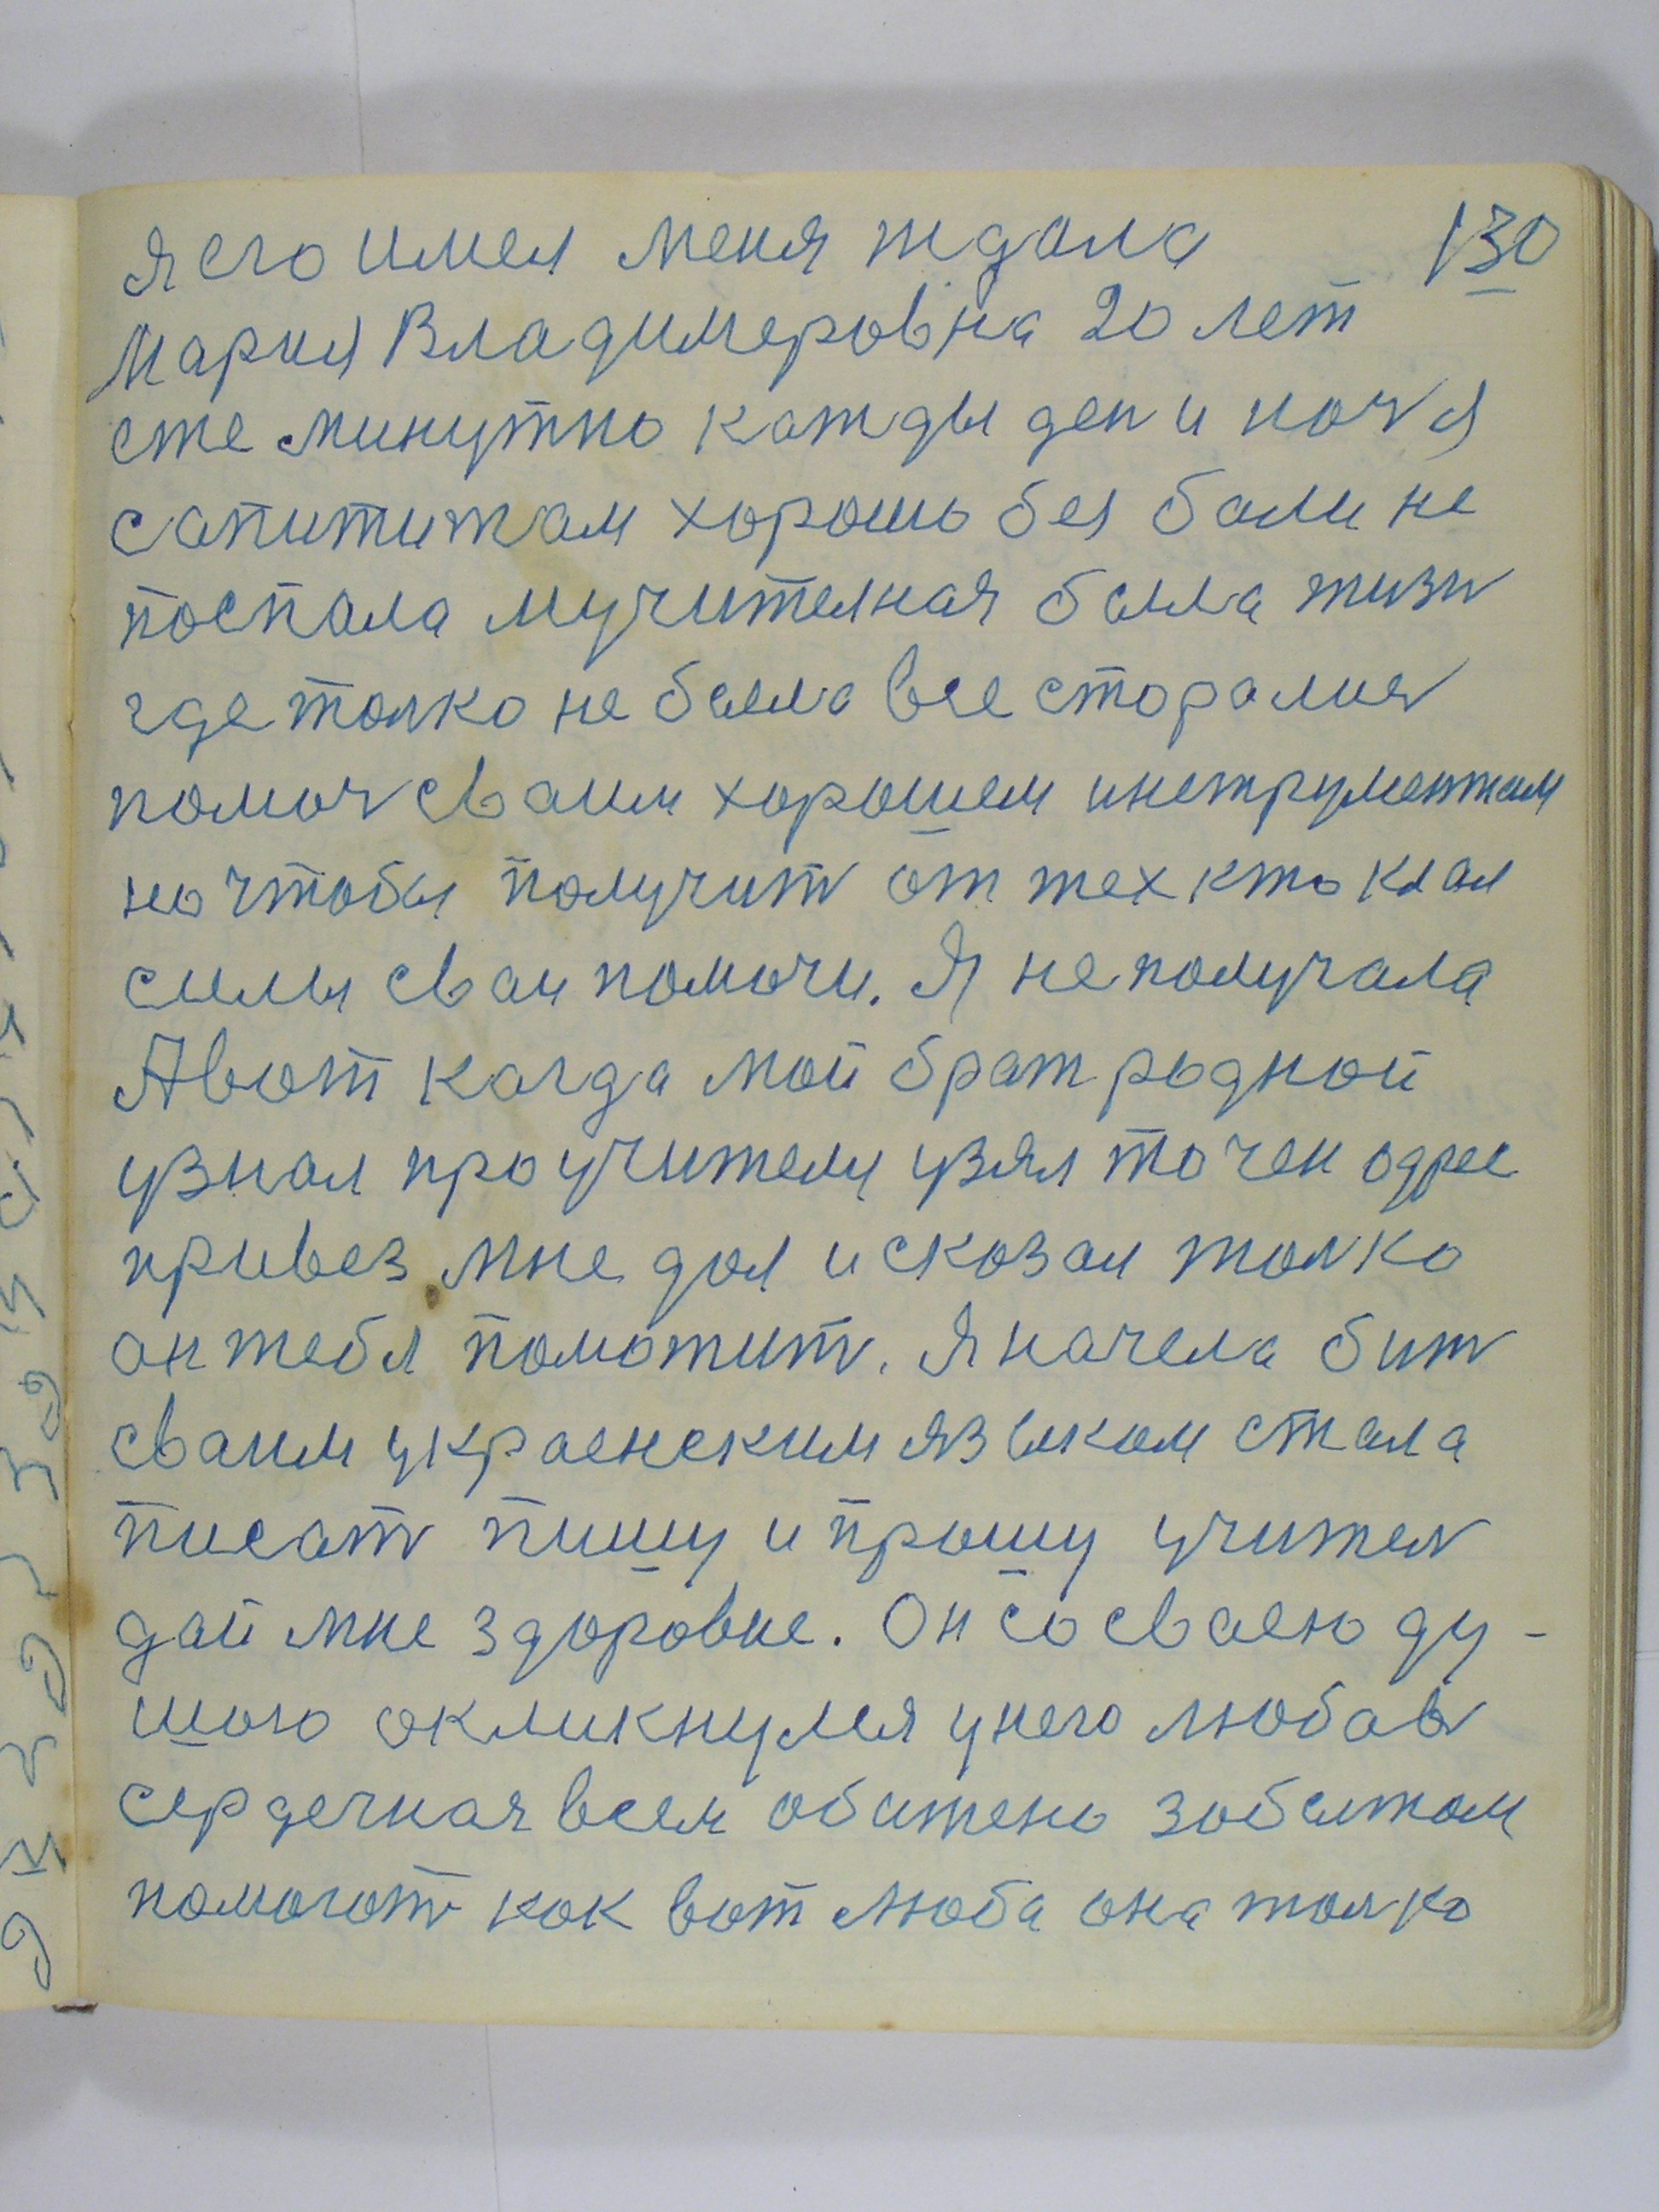 130
я его имел меня ждала
Мария Владимеровна 20 лет
еже минутно кажды ден и ночь я
сапитижам хорошо без бали не
поспала мучителная была жизнь
где толко не была все старалися
помочь сваим хорошем инструментам
но чтобы получить от тех кто клал
силы сваи помочи. Я не получала
А вот когда мой брат рьдной
узнал про учителя узял точен одрес
привез мне дал и сказал толко
он тебя поможить. Я начела бить
сваим украенским языком стала
писать пишу и прошу учитель
дай мне здоровие. Он со сваею ду-
шою окликнулся у него любовь
сердечная всем обижено забытом
помогать как вот люба она толко